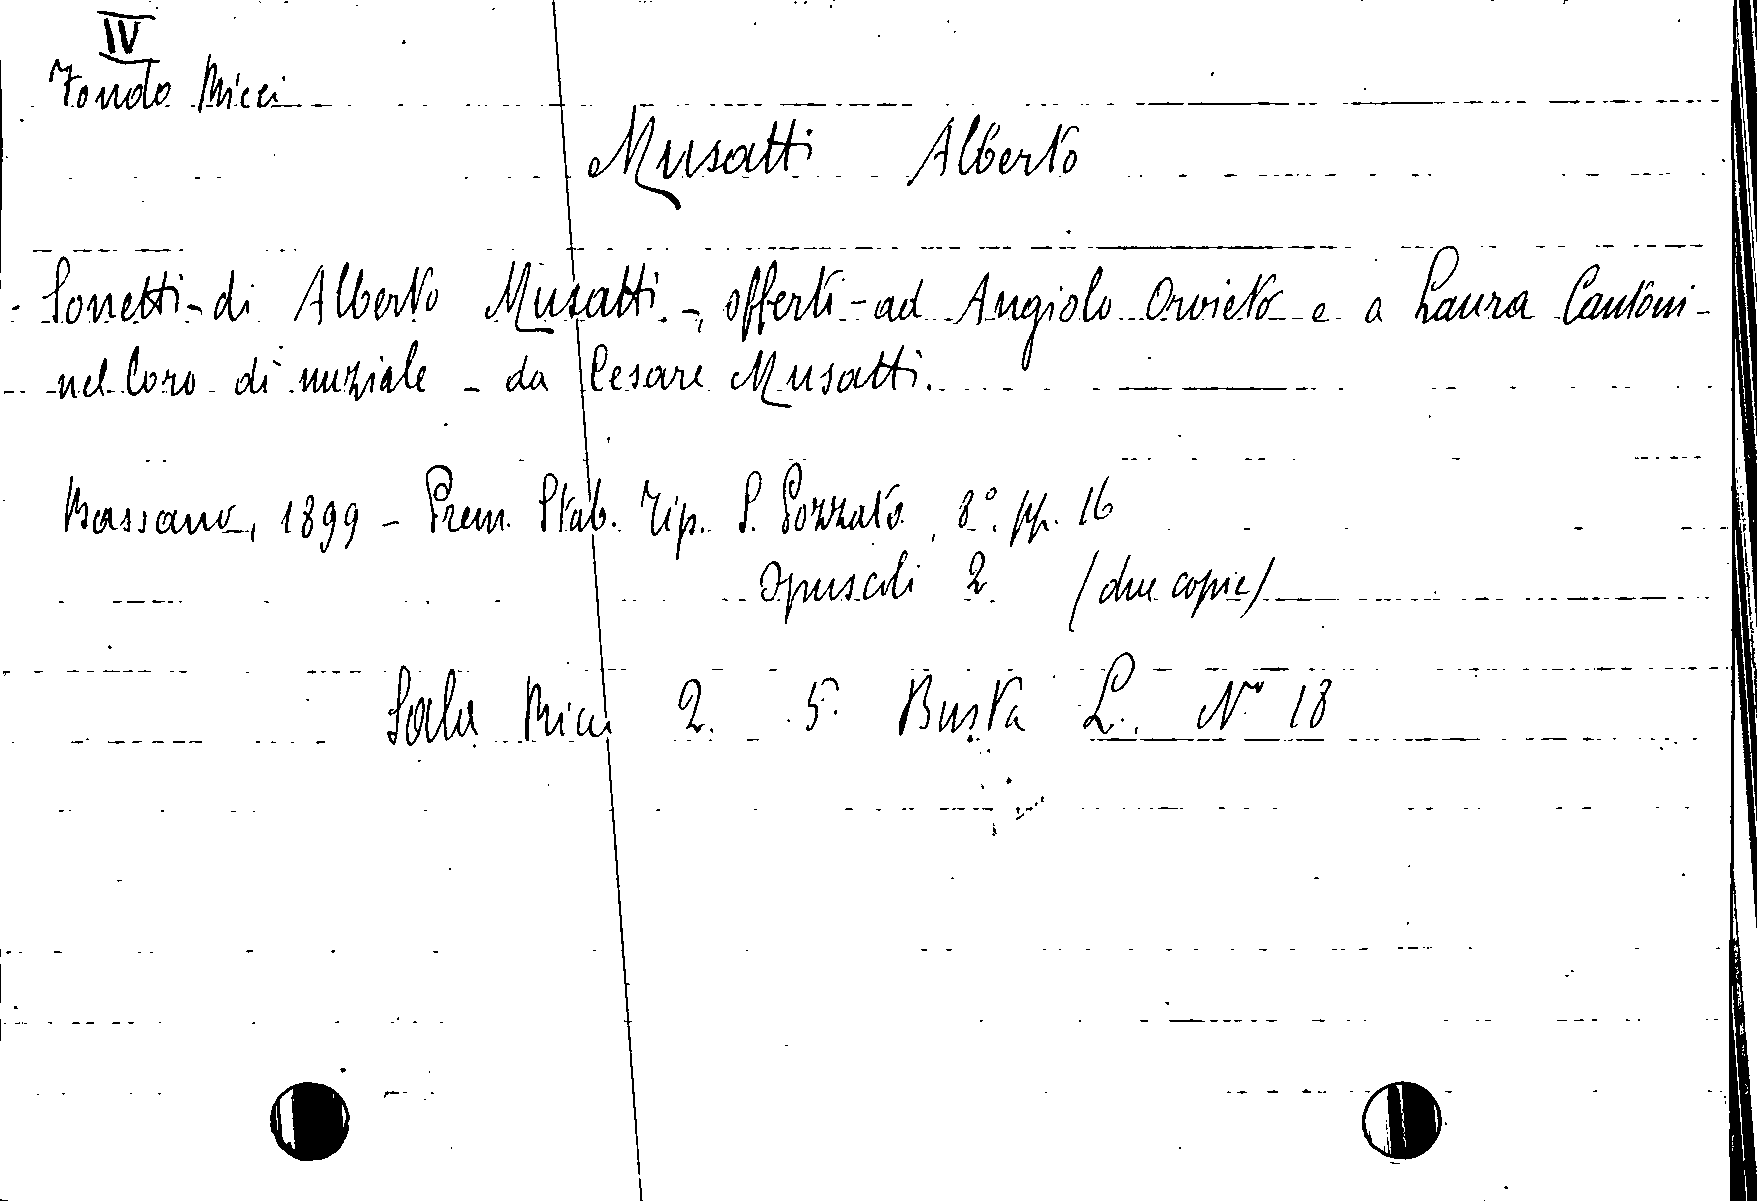 IV
Fondo Ricci
Musatti Alberto
Sonetti - di Alberto Musatti -, offerti - ad Angiolo Orvieto e a Laura Cantoni -
nel loro dì nuziale - da Cesare Musatti.
Bassano, 1899 - Prem. Stab. Tip. S. Pozzato, 8°. pp. 16
Opuscoli 2 (due copie)
Sala Ricci 2. 5. Busta L. N° 18